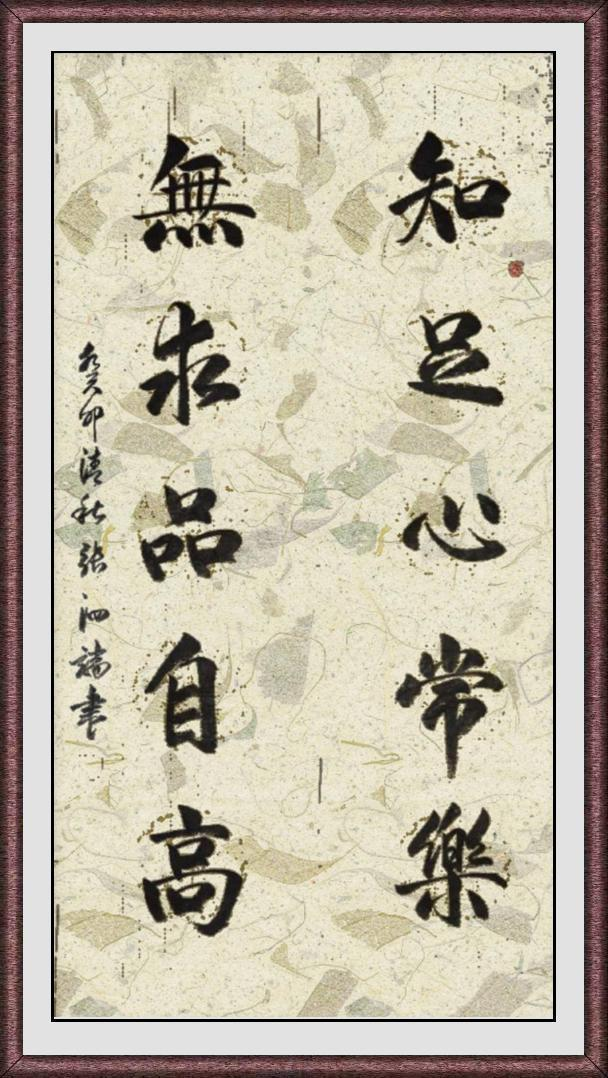 知足心常樂
無求品自高
癸卯清秋張泗端書